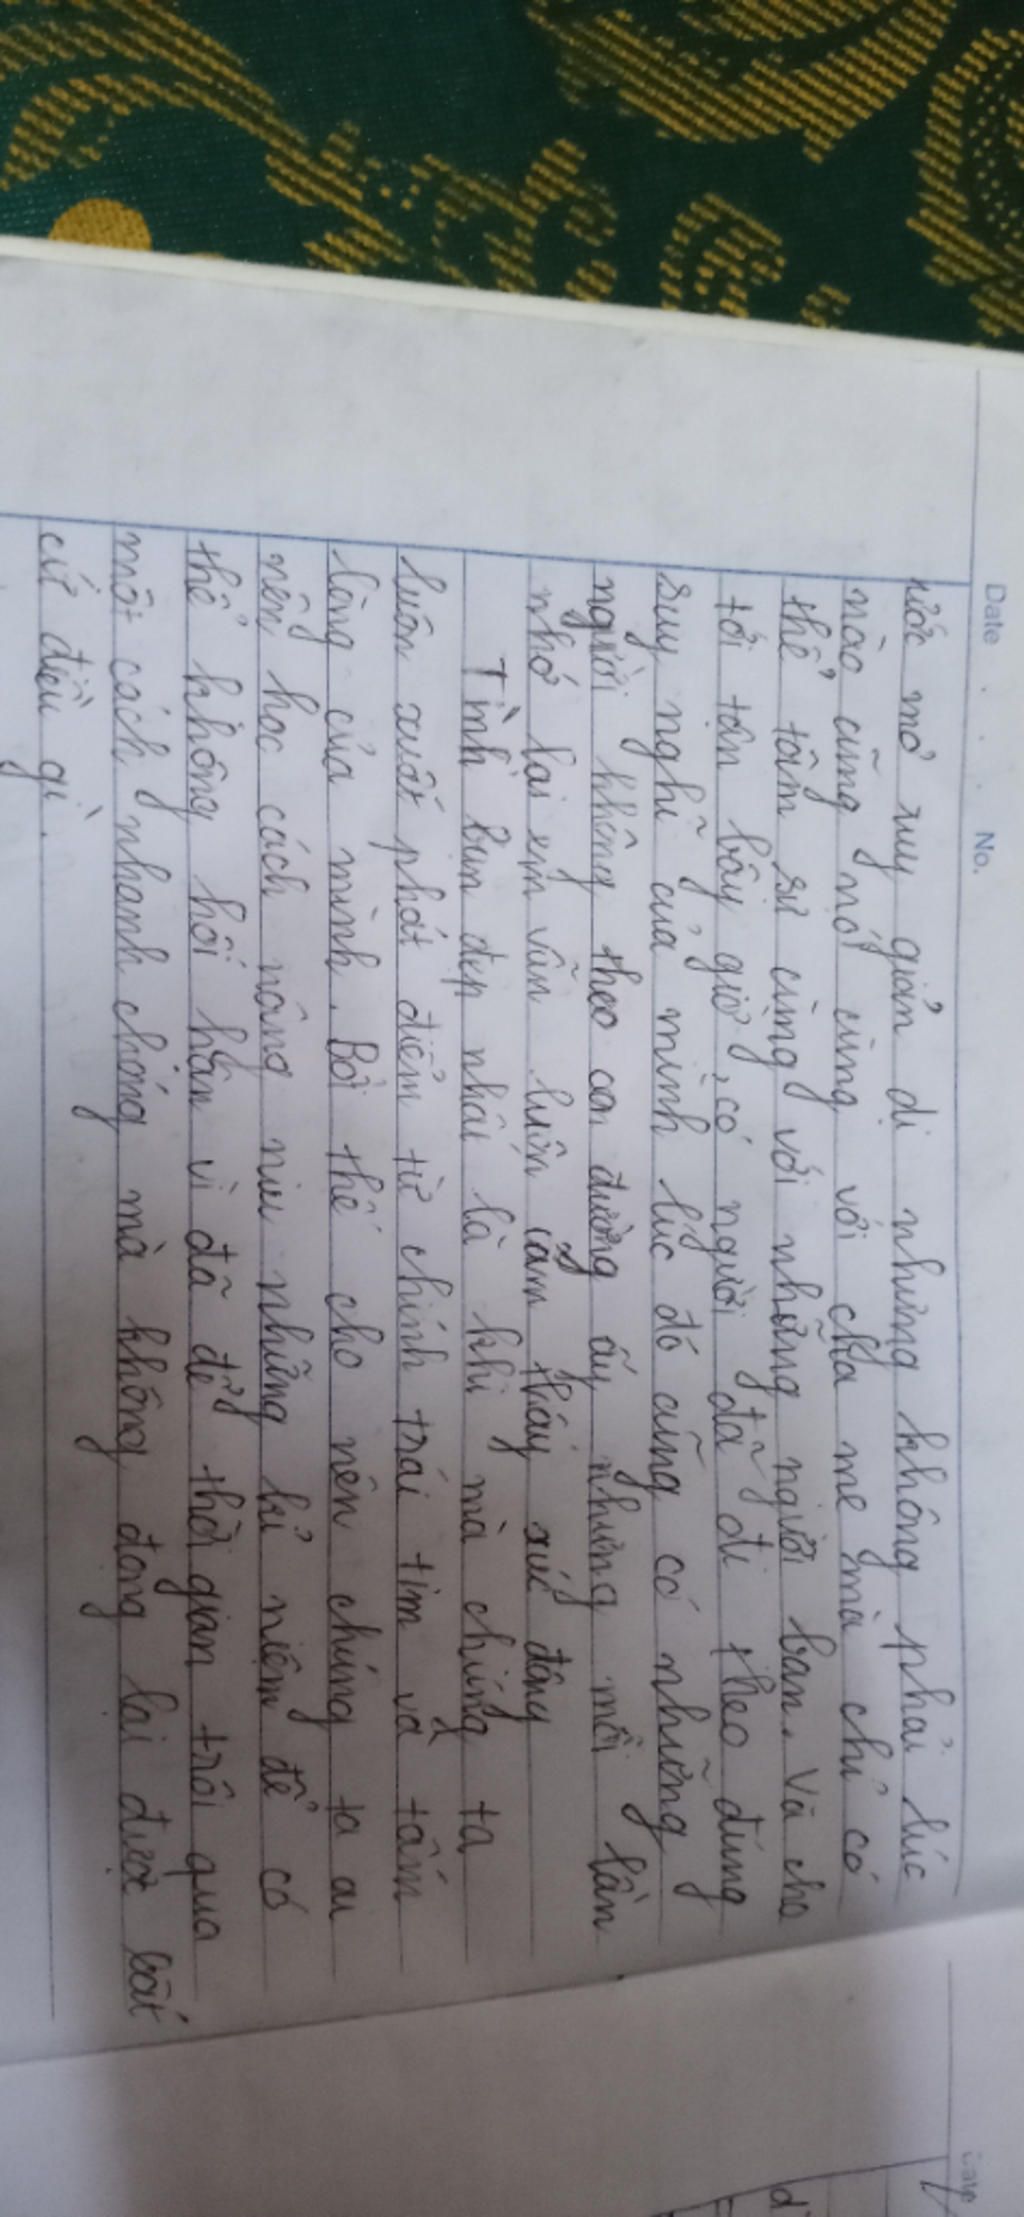 Date No.
ước mơ tuy giản dị nhưng không phải lúc
nào cũng nói cùng với cha mẹ mà chỉ có
thể tâm sự cùng với những người bạn. Và cho
tới tận bây giờ, có người đã đi theo đúng
suy nghĩ của mình lúc đó cũng có những
người không theo con đường ấy nhưng mỗi lần
nhớ lại em vẫn luôn cảm thấy xúc động
Tình bạn đẹp nhất là khi mà chúng ta
luôn xuất phát điểm từ chính trái tim và tấm
lòng của mình. Bởi thế cho nên chúng ta ai
nên học cách nâng niu những kỉ niệm để có
thể không hối hận vì đã để thời gian trôi qua
một cách nhanh chóng mà không đọng lại được bất
cứ điều gì.
Date